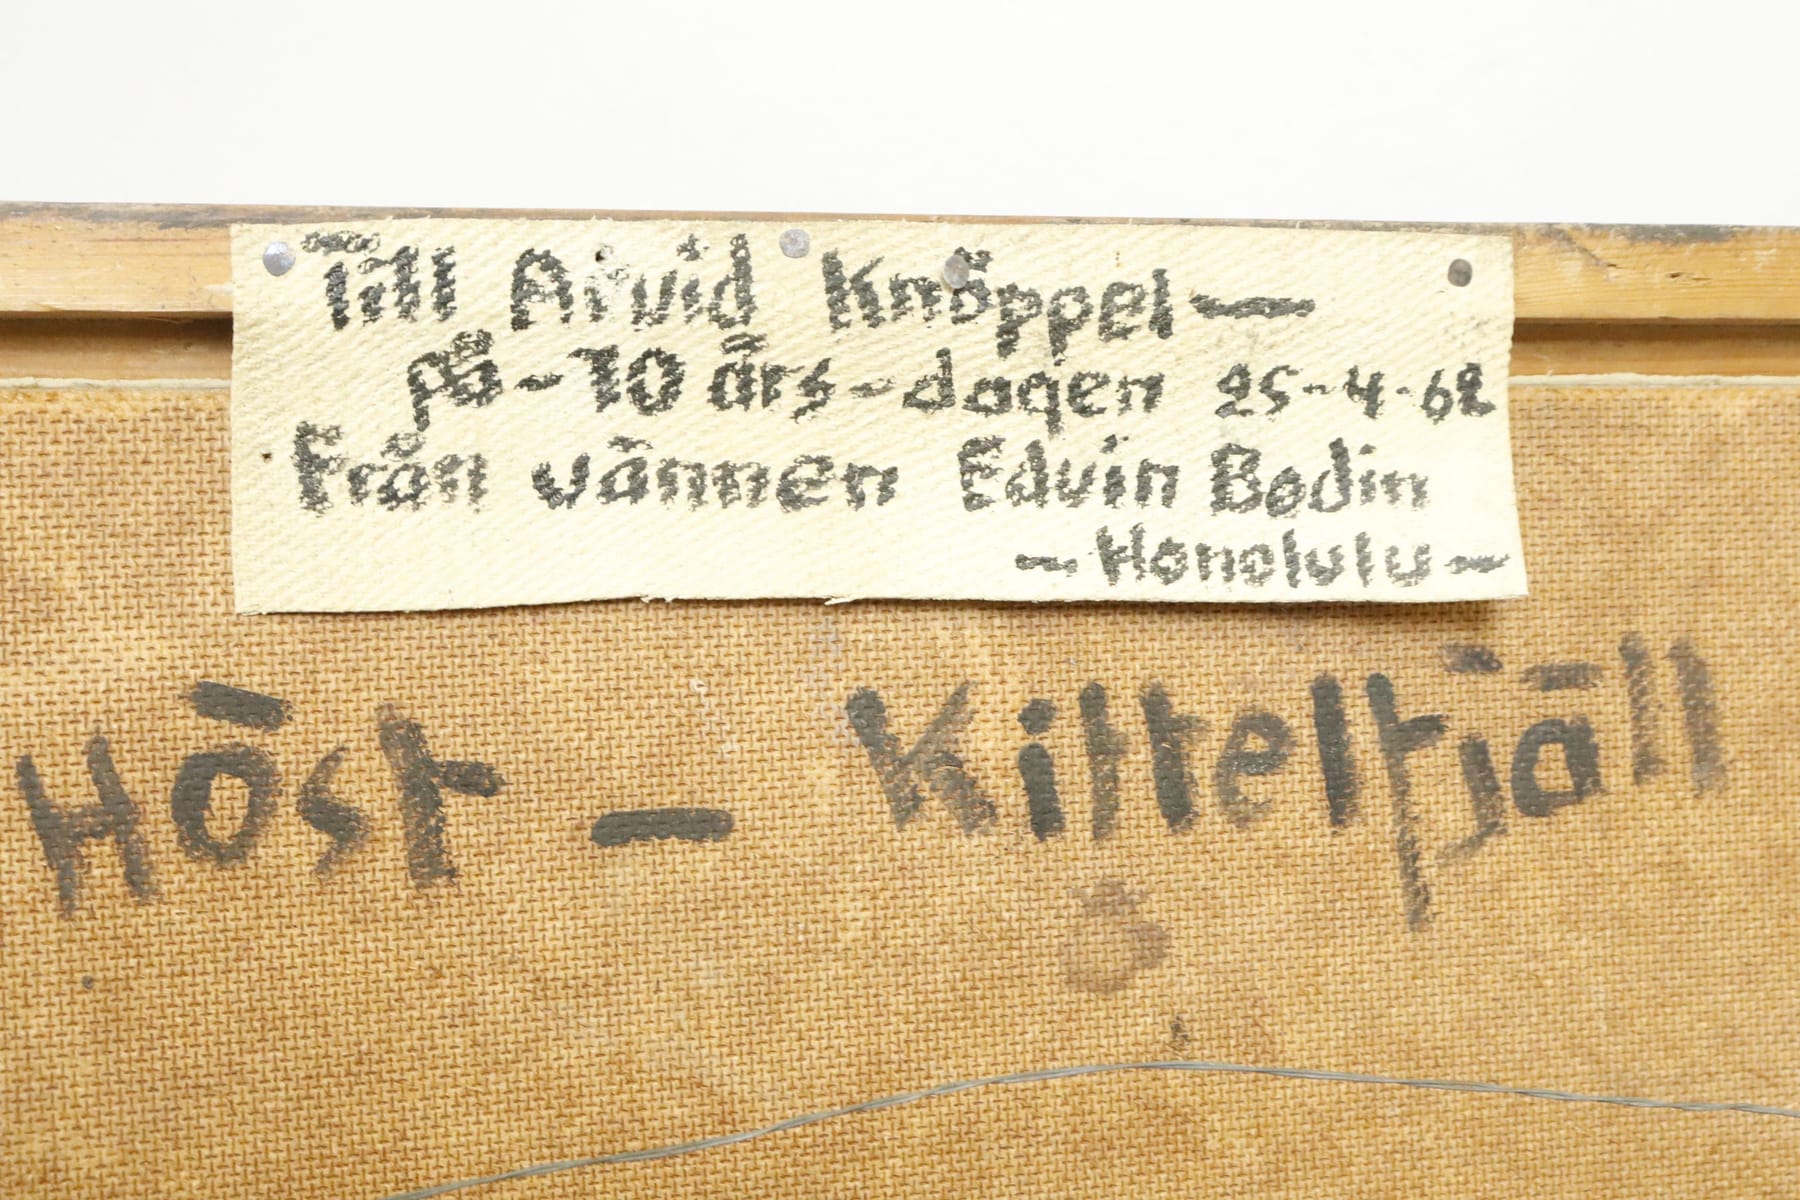 Till Arvid Knöppel —
på - 70 års - dagen 25-4-62
Från vännen Edvin Bodin
- Honolulu -
Höst - Kittelfjäll